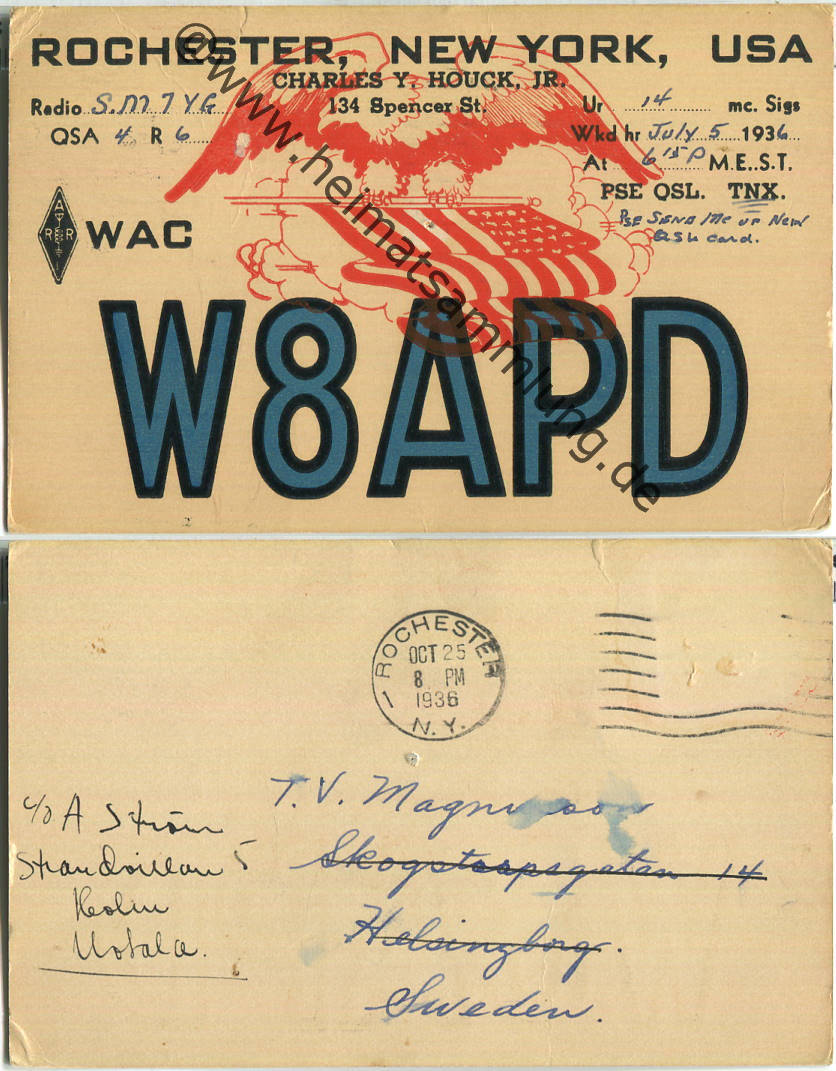 ROCHESTER, NEW YORK, USA
CHARLES Y. HOUCK, JR.
134 Spencer St.
Radio SM7YG
QSA 4 R 6
Ur 14 mc. Sigs
Wkd hr July 5 1936
At 615P M.E..S.T.
PSE QSL. TNX.
PSE Send me ur New
QSL Card.
A
R R L
WAC
W8APD
©www.heimatsammlung.de
ROCHESTER
OCT 25
8 PM
1936
N.Y.
T. V. Magnusson
Skogstorpsgatan 14
Helsingborg.
Sweden.
c/o A Ström
Strandvillan 5
Holm